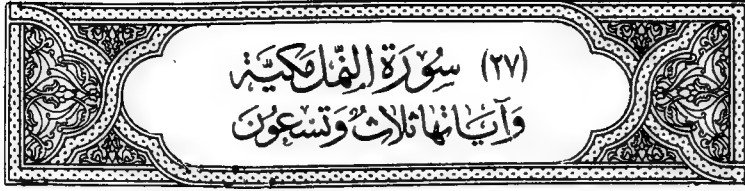 (٢٧) سُورَةِ النَّمْلِ مَكيَّة
وَآيَاتهَا ثَلَاثٌ وَتِسْعُونَ